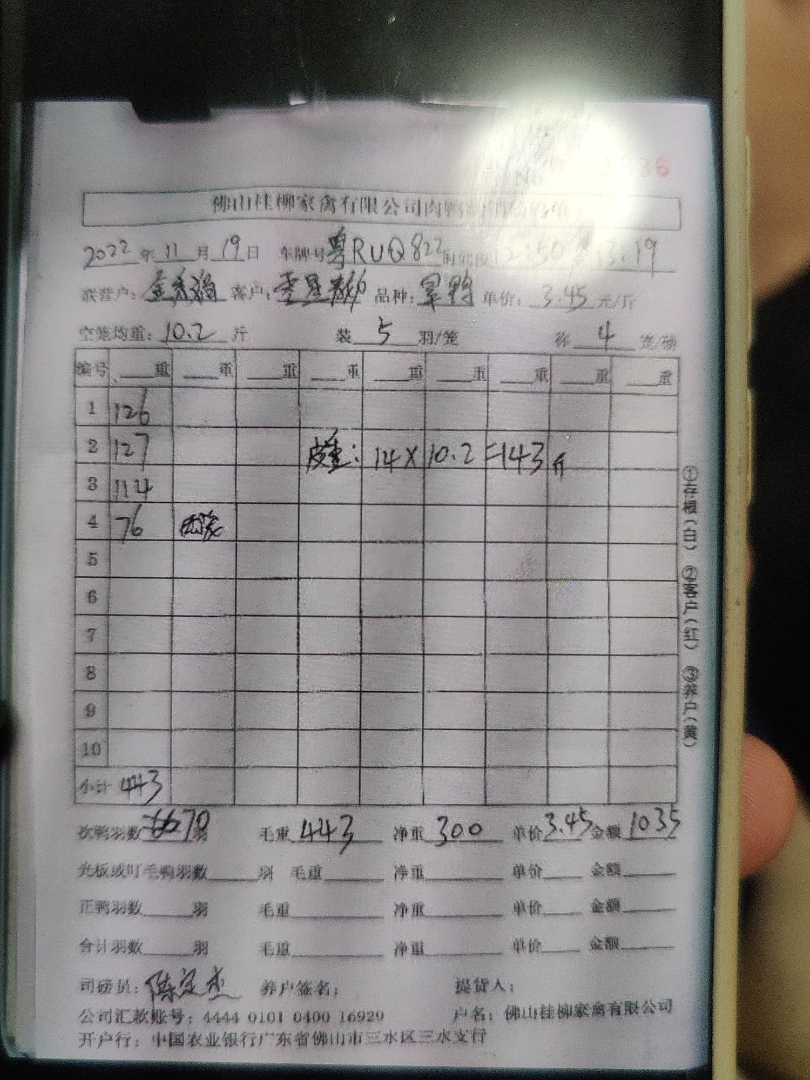 佛山桂柳家禽有限公司肉鸭
2022年11月19日 车牌号粤RUQ822 12:50 13:19
联营户: 客户: 品种: 单价: 3.45 元/斤
空笼均重: 10.2 斤 装 5 羽/笼 称 4 笼/磅
编号 重 重 重 重 重 重 重 重 重
1 126
2 127 皮重: 14×10.2=143斤
3 114
4 76
5
6
7
8
9
10
小计 443
次鸭羽数 70 羽 毛重 443 净重 300 单价 3.45 金额 1035
光板或叮毛鸭羽数 羽 毛重 净重 单价 金额
正鸭羽数 羽 毛重 净重 单价 金额
合计羽数 羽 毛重 净重 单价 金额
司磅员: 陈定杰 养户签名: 提货人:
公司汇款账号: 4444 0101 0400 16929 户名: 佛山桂柳家禽有限公司
开户行: 中国农业银行广东省佛山市三水区三水支行
①存根(白) ②客户(红) ③养户(黄)